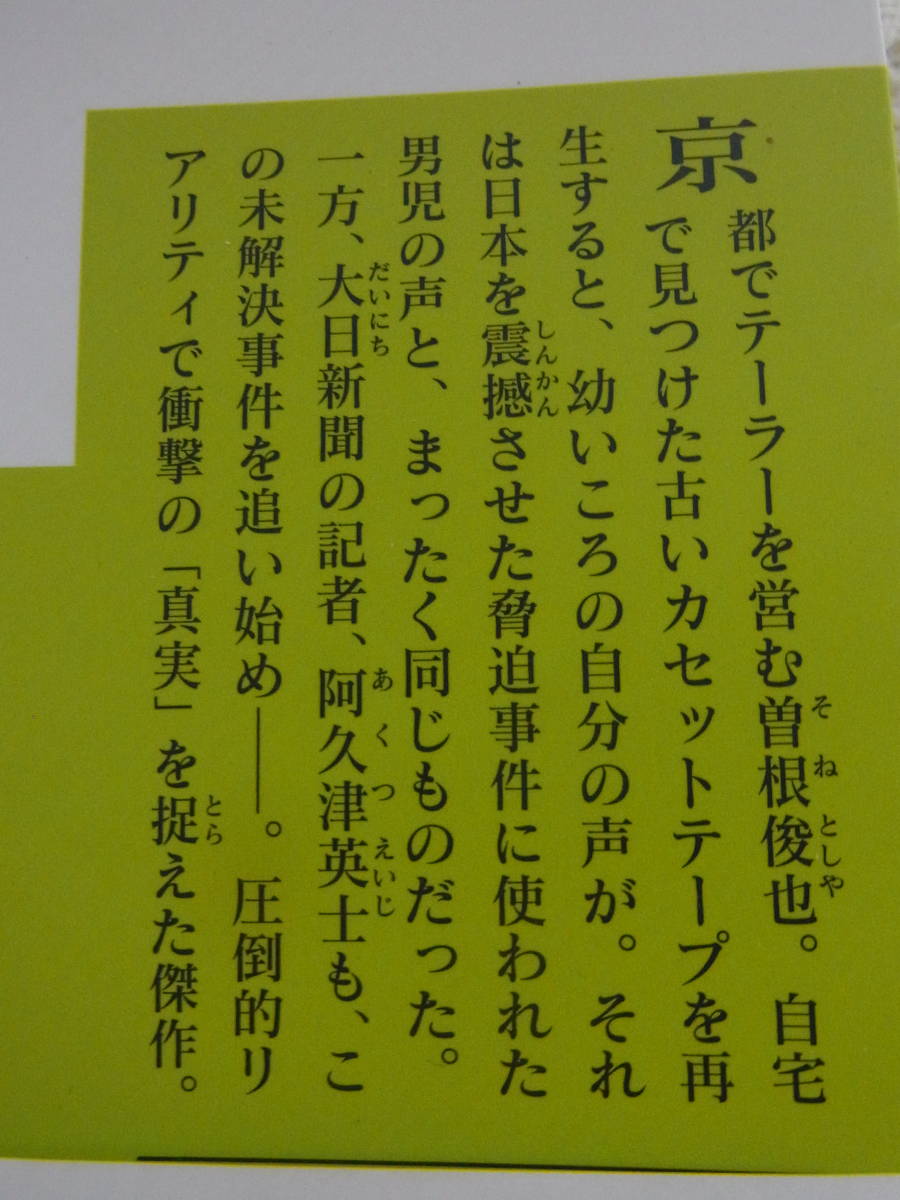 京都でテーラーを営む曽根俊也。自宅
で見つけた古いカセットテープを再
生すると、幼いころの自分の声が。それ
は日本を震撼させた脅迫事件に使われた
男児の声と、まったく同じものだった。
一方、大日新聞の記者、阿久津英士も、こ
の未解決事件を追い始め——。圧倒的リ
アリティで衝撃の「真実」を捉えた傑作。